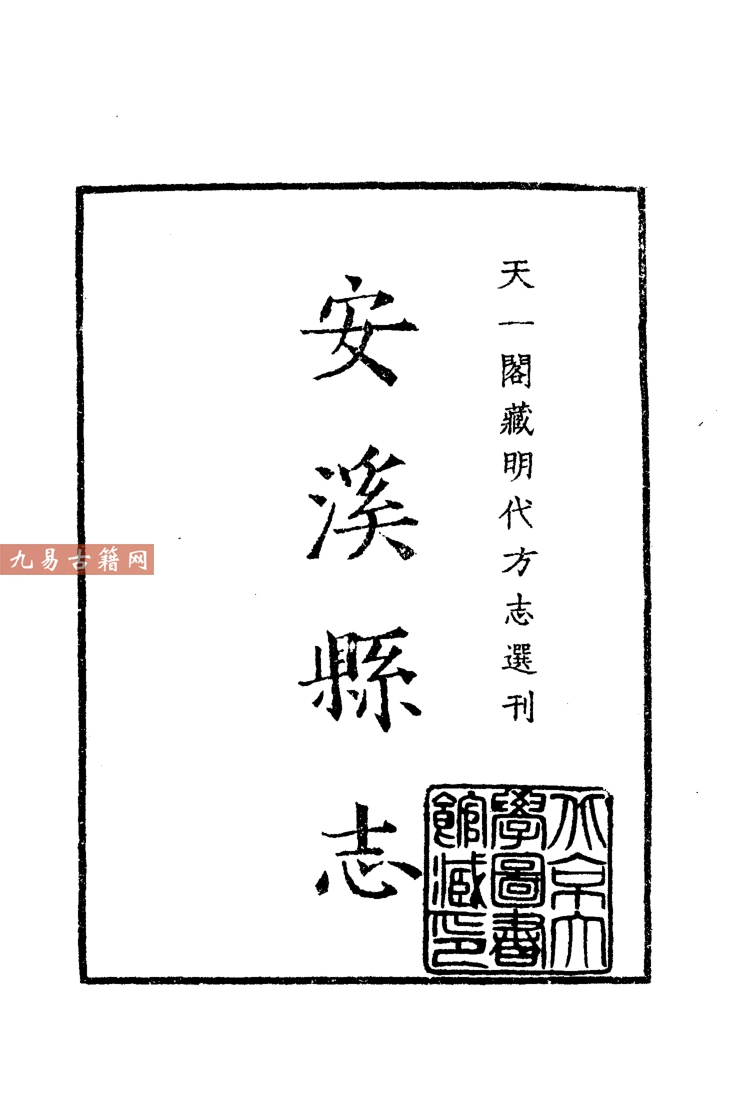 天一閣藏明代方志選刊
安溪縣志
北京大
學圖書
館藏印
九易古籍网